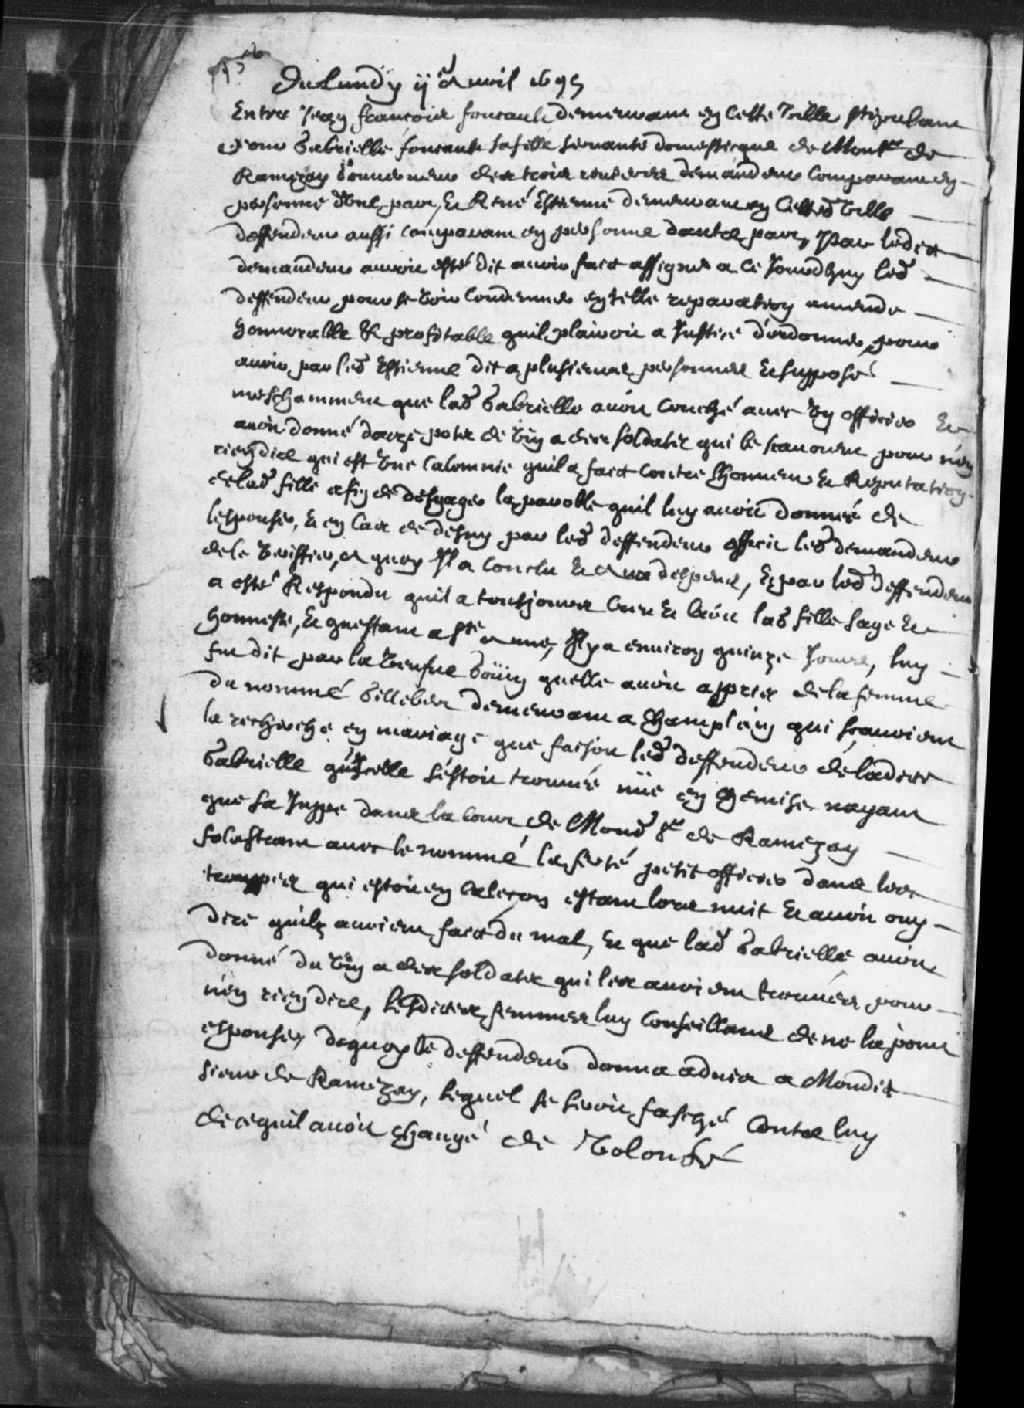 Du Lundy ii.e Avril 1695
Entre Jean francois foucault demeurant en cette Ville stipulant
pour Gabrielle foucault sa fille servante domestique de Mons.r de
Ramezay Gouverneur des trois rivieres demandeur comparant en
personne d'une part, Et René Estienne demeurant en cetted Ville
deffendeur aussi comparant en personne dautre part, Par ledict
demandeur auroit esté dit avoir faict assigner a ce Jourdhuy led
deffendeur pour se voir condemner en telle reparation amende
honnorable & profitable quil plairoit a Justice d'ordonner, pour
avoir par led Estienne dit a plusieurs personnes & supposé
meschamment que lad Gabrielle avoit couché avec un officier Et
avoit donné deux pots de vin a des soldats qui le scavoient pour n'en
rien dire qui est une calomnie quil a faict contre lhonneur & Reputation
de lad fille afin de desgager la parolle quil luy avoit donnée de
lespouser, & en cas de desny par led deffendeur offroit led demandeur
de le veriffier, a quoy Il a conclu & aux despens, Et par led deffendeur
a esté Respondu quil a tousjours creu & croit lad fille sage &
honneste, & questant a S.te anne, Il y a environ quinze Jours, luy
fut dit par la veufve Goüin quelle avoit appris de la femme
du nommé Billebes demeurant a Champlain qui scavoient
la recherche en mariage que faisoit led deffendeur de ladite
Gabrielle qu'Icelle s'estoit trouvée nüe en chemise nayant
que sa Juppe dans la cour de Mond S.r de Ramezay
folastrant avec le nommé la ferté petit officier dans les
trouppes qui estoit en calecon estant lors nuit & avoit ouy
dire quilz avoient faict du mal, & que lad Gabrielle avoit
donné du vin a des soldats qui les avoient trouvés pour
n'en rien dire, lesdites femmes luy conseillant de ne la point
espouser, dequoy le deffendeur donna advis a Mondit
sieur de Ramezay, lequel se seroit fasché contre luy
de ce quil avoit changé de volonté